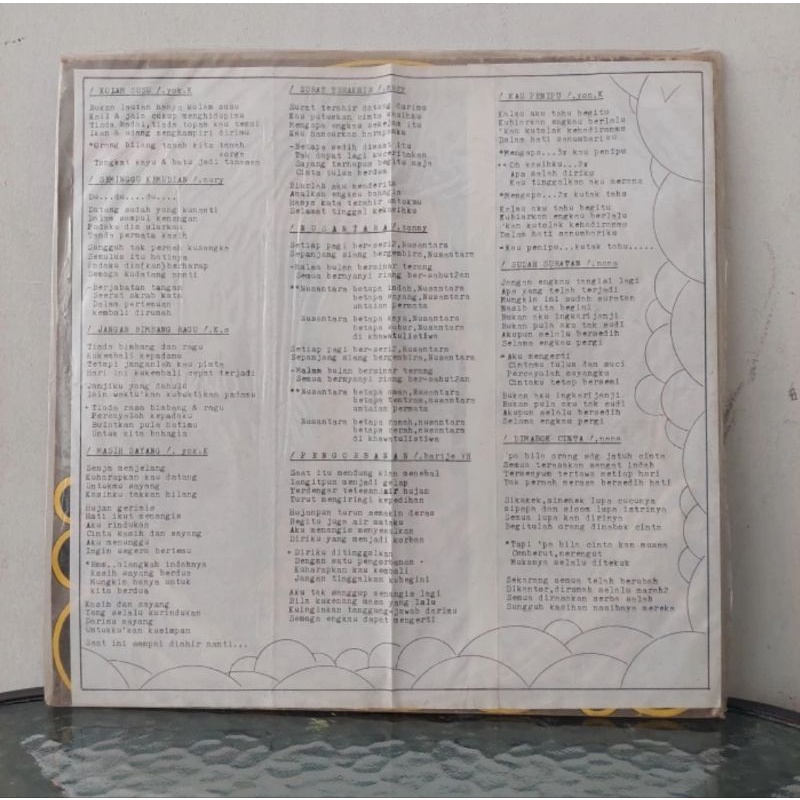 / KOLAM SUSU /.yok.K
Bukan lautan hanya kolam susu
Kail & jala cukup menghidupimu
Tiada Badai,tiada topan kau temui
Ikan & udang menghampiri dirimu
*Orang bilang tanah kita tanah
sorga
Tongkat kayu & batu jadi tanaman
/ SEMINGGU KEMUDIAN /.mury
Du...du....du....
Datang sudah yang kunanti
Dalam sampul kenangan
Padaku dia ulurkan
Tanda permata kasih
Sungguh tak pernah kusangka
Semulus itu hatinya
Padaku dia(kan)berharap
Semoga kudatang nanti
-Berjabatan tangan
Seerat skrub kata
Dalam pertemuan
kembali dirumah
/ JANGAN BIMBANG RAGU /.K.s
Tiada bimbang dan ragu
Kukembali kepadamu
Tetapi janganlah kau pinta
Hari ini kukembali cepat terjadi
Janjiku yang dahulu
lain waktu'kan kubuktikan padamu
* Tiada rasa bimbang & ragu
Percayalah kepadaku
Bulatkan pula hatimu
Untuk kita bahagia
/ MASIH DATANG /. yok.K
Senja menjelang
Kuharapkan kau datang
Untukmu sayang
Kasihku takkan hilang
Hujan gerimis
Hati ikut menangis
Aku rindukan
Cinta kasih dan sayang
Aku menunggu
Ingin segera bertemu
*Hmm..alangkah indahnya
Kasih sayang berdua
Mungkin hanya untuk
kita berdua
Kasih dan sayang
Yang selalu kurindukan
Darimu sayang
Untukku'kan kusimpan
Saat ini sampai diahir nanti...
/ SURAT TERAKHIR /.mury
Surat terahir datang darimu
Kau putuskan cinta kasihku
Mengapa engkau sekejam itu
Kau hancurkan harapanku
-Betapa sedih disaat itu
Tak dapat lagi kuceritakan
Sayang terhapus begitu saja
Cinta tulus berdua
Biarlah aku menderita
Asalkan engkau bahagia
Hanya kata terahir untukmu
Selamat tinggal kekasihku
/ N U S A N T A R A /.tonny
Setiap pagi ber-seri2,Nusantara
Sepanjang siang bergembira,Nusantara
-Malam bulan bersinar terang
Semua bernyanyi riang ber-sahut2an
**Nusantara betapa indah,Nusantara
betapa sayang,Nusantara
untaian permata
Nusantara betapa kaya,Nusantara
betapa subur,Nusantara
di khawtulistiwa
Setiap pagi ber-seri2,Nusantara
Sepanjang siang bergembira,Nusantara
-Malam bulan bersinar terang
Semua bernyanyi riang ber-sahut2an
**Nusantara betapa aman,Nusantara
betapa tentram,nusantara
untaian permata
Nusantara betapa ramah,nusantara
betapa cerah,nusantara
di khawatulistiwa
/ P E N G O R B A N A N /.harije VB
Saat itu mendung kian menebal
langitpun menjadi gelap
Terdengar tetesan air hujan
Turut mengiringi kepedihan
Hujanpun turun semakin deras
Begitu juga air mataku
Aku menangis menyesalkan
Diriku yang menjadi korban
* Diriku ditinggalkan
Dengan satu pengorbanan
Kuharapkan kau kembali
Jangan tinggalkan kubegini
Aku tak sanggup menangis lagi
Bila kukenang masa yang lalu
Kuinginkan tanggung-jawab darimu
Semoga engkau dapat mengerti
/ KAU PENIPU /.yon.K
Kalau aku tahu begitu
Kubiarkan engkau berlalu
'kan kutolak kehadiranmu
Dalam hati sanubariku
*Mengapa...3x kau penipu
**Oh kasihku...2x
Apa salah diriku
Kau tinggalkan aku merana
*Mengapa...3x kutak tahu
Kalau aku tahu begitu
Kubiarkan engkau berlalu
'kan kutolak kehadiranmu
Dalam hati sanubariku
-Kau penipu...kutak tahu.....
/ SUDAH SURATAN /.nana
Jangan engkau tangisi lagi
Apa yang telah terjadi
Mungkin ini sudah suratan
Nasib kita begini
Bukan aku ingkari janji
Bukan pula aku tak sudi
Akupun selalu bersedih
Selama engkau pergi
* Aku mengerti
Cintamu tulus dan suci
Percayalah sayangku
Cintaku tetap bersemi
Bukan aku ingkari janji
Bukan pula aku tak sudi
Akupun selalu bersedih
Selama engkau pergi
/ DIMABOK CINTA /.nana
'pa bila orang sdg jatuh cinta
Semua terasakan sangat indah
Tersenyum tertawa setiap hari
Tak pernah merasa bersedih hati
Sikakek,sinenek lupa cucunya
sipapa dan sioom lupa istrinya
Semua lupa kan dirinya
Begitulah orang dimabok cinta
*Tapi 'pa bila cinta kan musna
Cemberut,merengut
Mukanya selalu ditekuk
Sekarang semua telah berubah
Dikantor,dirumah selalu marah2
Semua dirasakan serba salah
Sungguh kasihan nasibnya mereka